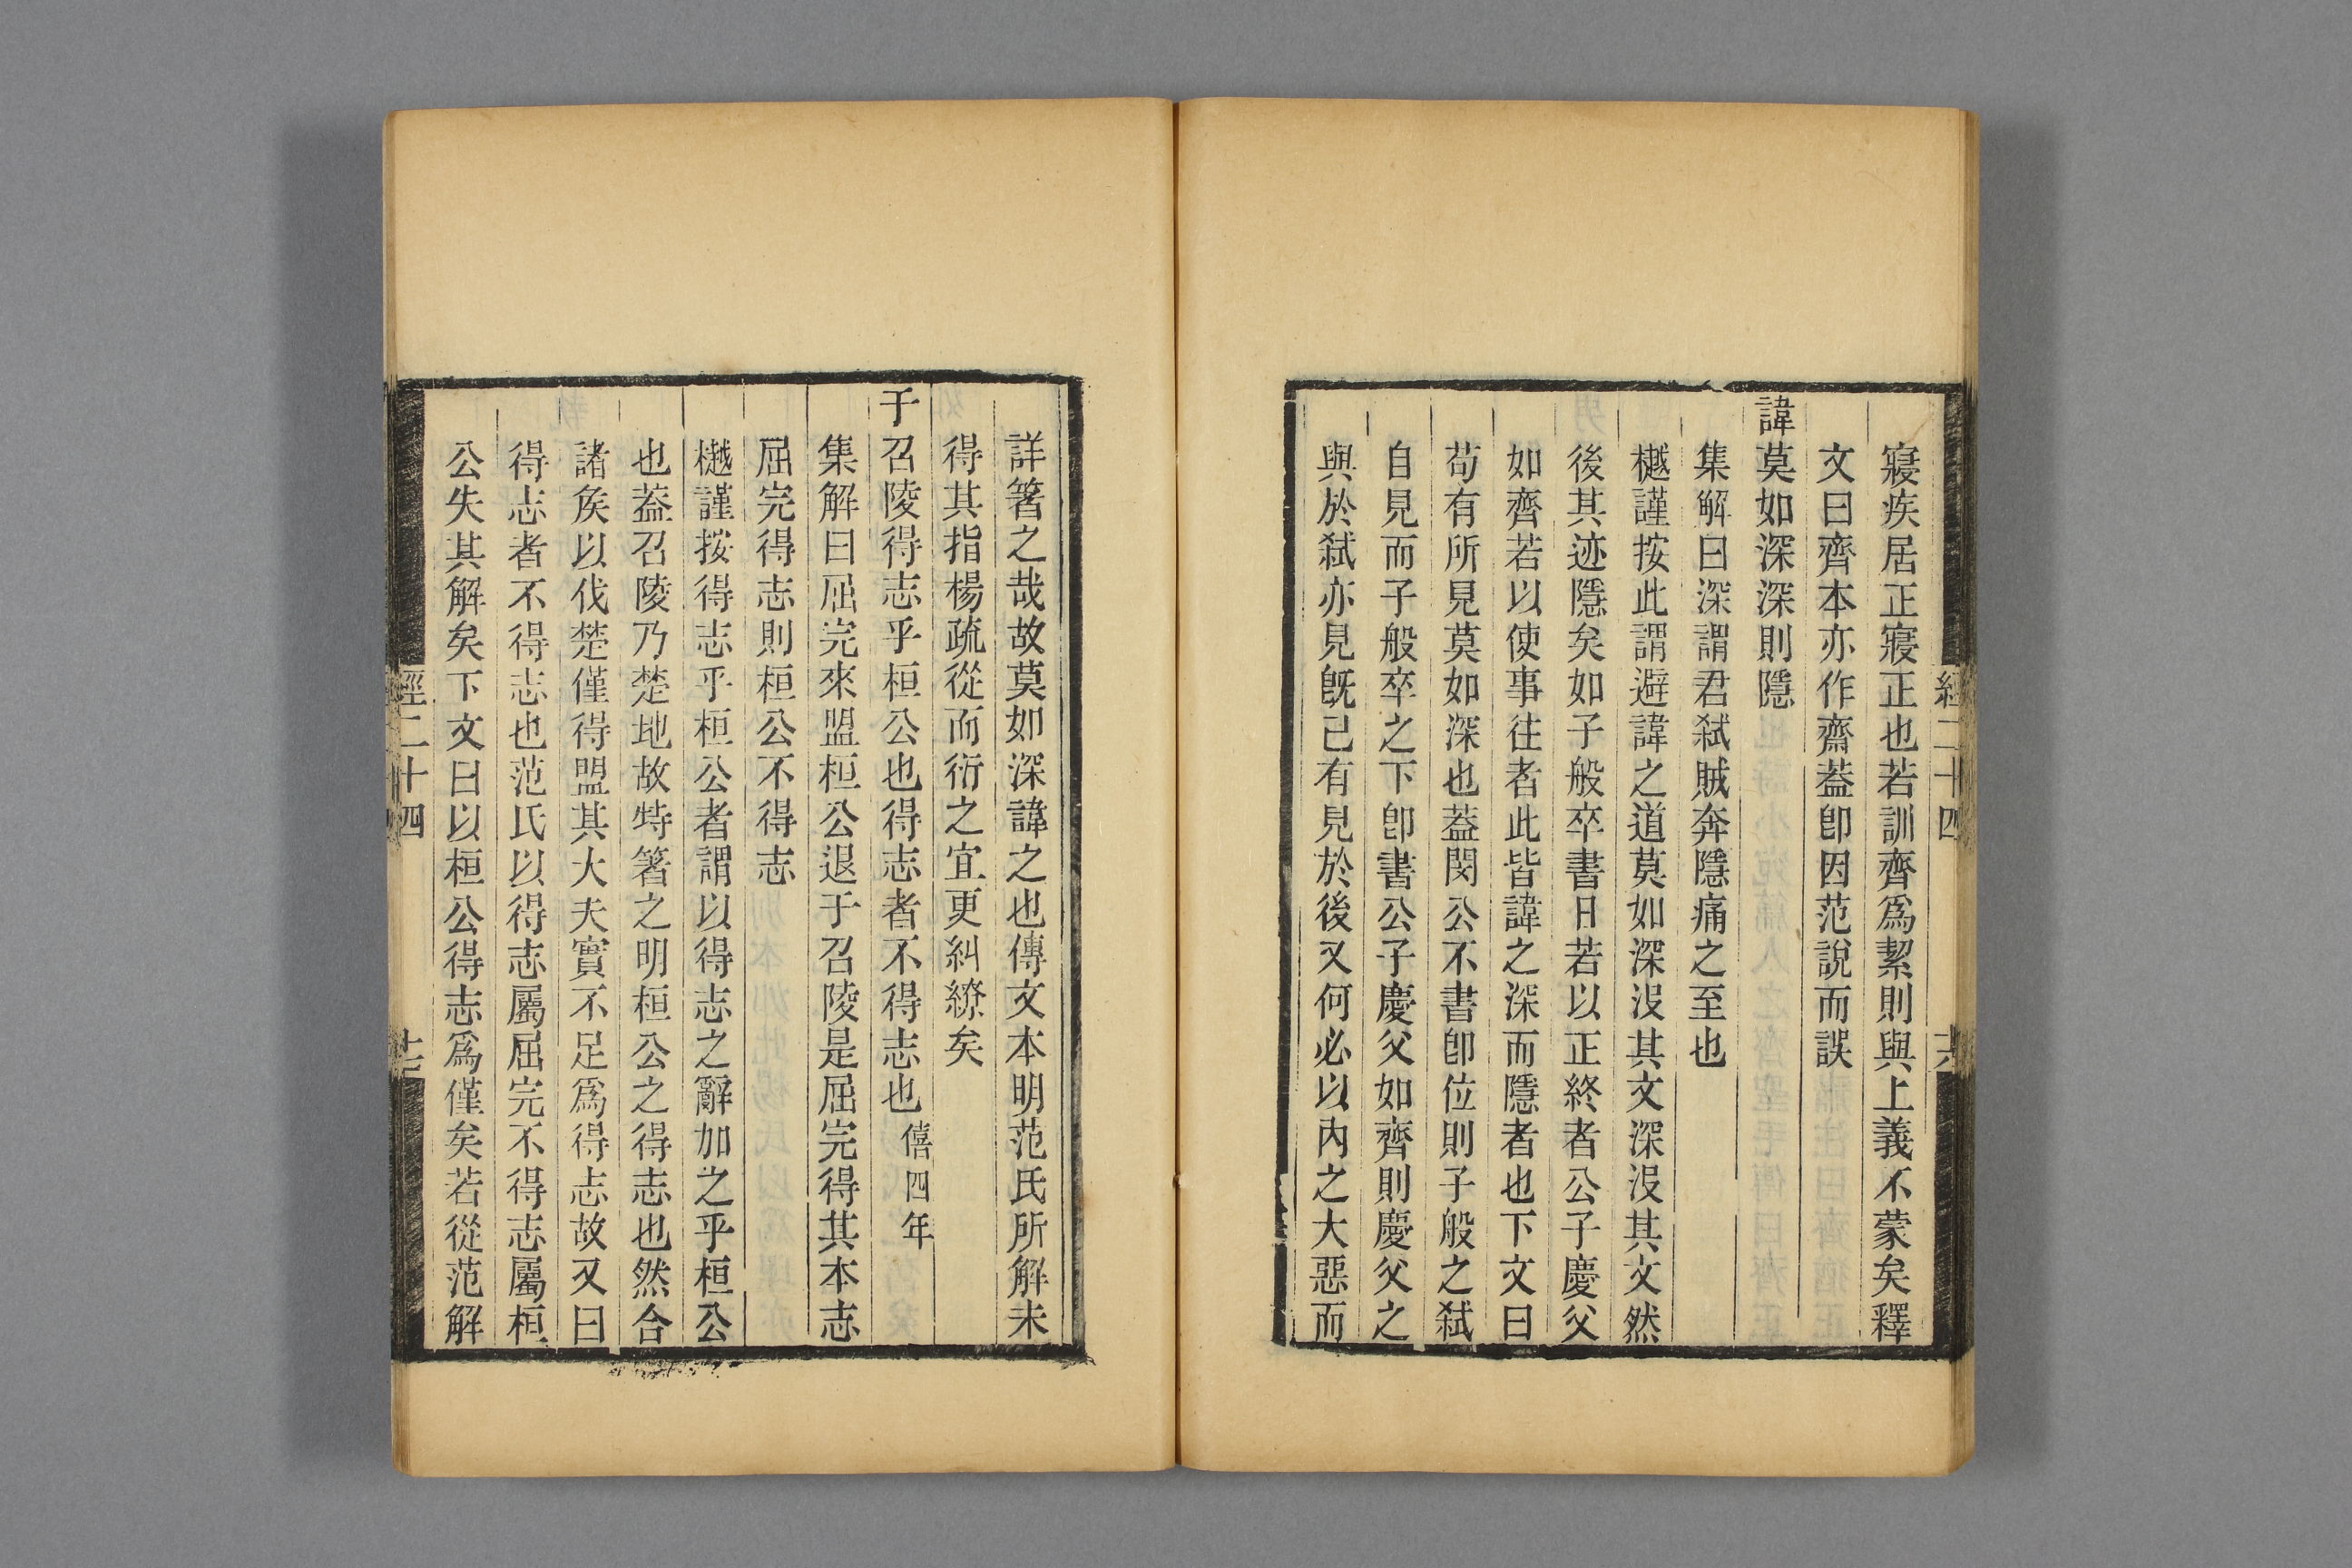 經二十四
十六
寢疾居正寢正也若訓齊爲絜則與上義不蒙矣釋
文曰齊本亦作齋葢卽因范說而誤
諱莫如深深則隱
集解曰深謂君弒賊奔隱痛之至也
樾謹按此謂避諱之道莫如深沒其文深沒其文然
後其迹隱矣如子般卒書日若以正終者公子慶父
如齊若以使事往者此皆諱之深而隱者也下文曰
苟有所見莫如深也葢閔公不書卽位則子般之弒
自見而子般卒之下卽書公子慶父如齊則慶父之
與於弒亦見旣已有見於後又何必以內之大惡而
詳箸之哉故莫如深諱之也傳文本明范氏所解未
得其指楊疏從而衍之宜更糾繚矣
于召陵得志乎桓公也得志者不得志也僖四年
集解曰屈完來盟桓公退于召陵是屈完得其本志
屈完得志則桓公不得志
樾謹按得志乎桓公者謂以得志之辭加之乎桓公
也葢召陵乃楚地故特箸之明桓公之得志也然合
諸矦以伐楚僅得盟其大夫實不足爲得志故又曰
得志者不得志也范氏以得志屬屈完不得志屬桓
公失其解矣下文曰以桓公得志爲僅矣若從范解
經二十四
十七